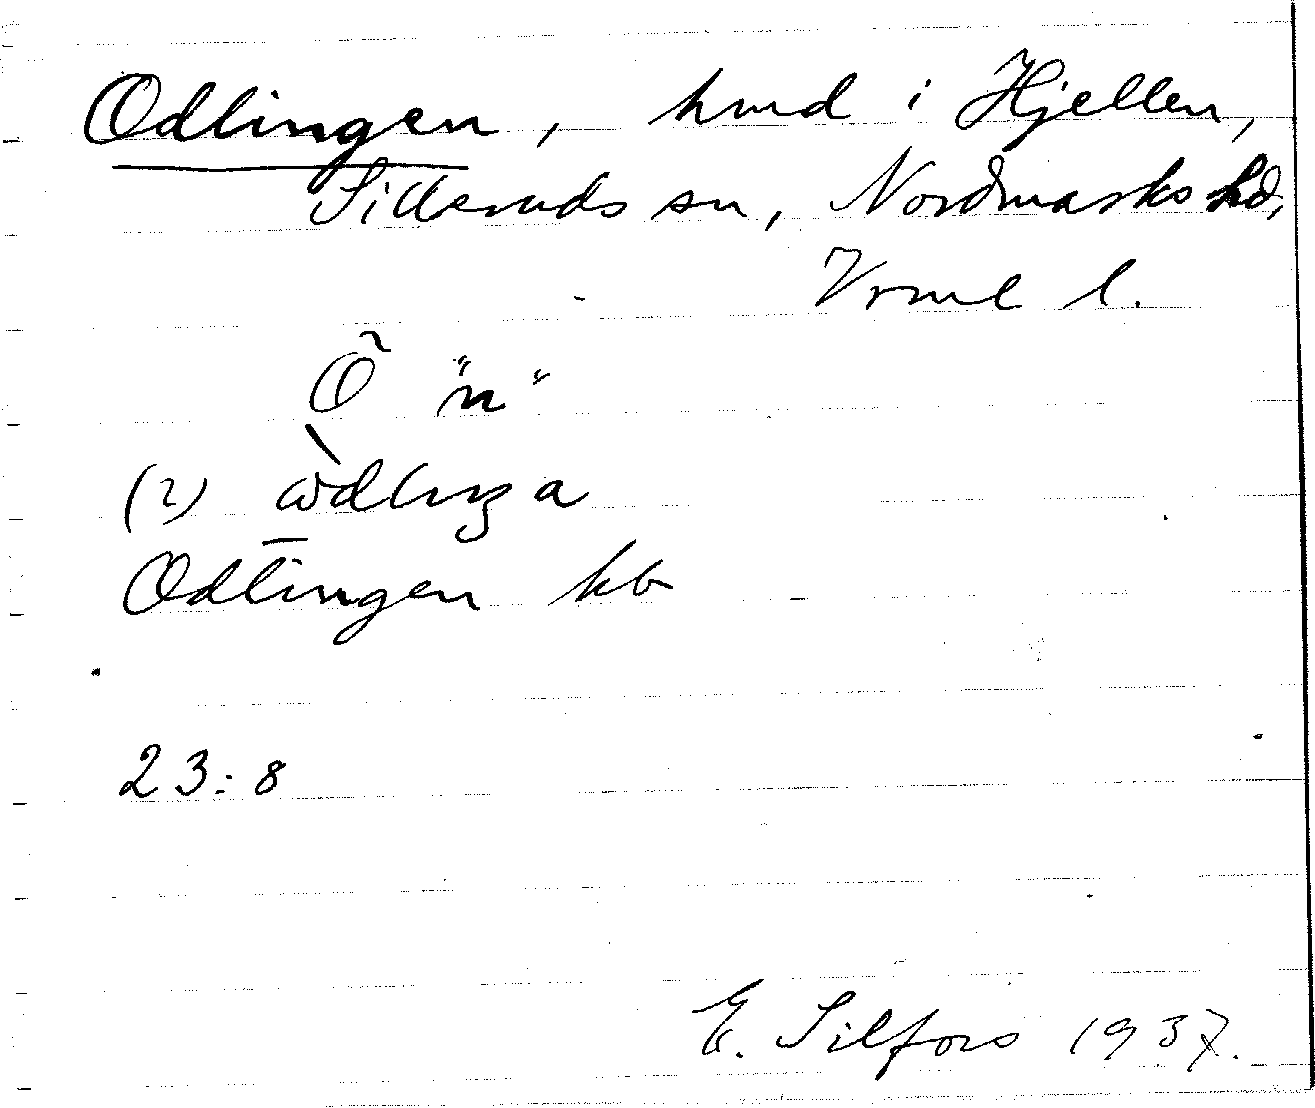 Odlingen, hmd i Hjellen,
Silleruds sn, Nordmarks hd,
Vrml l.
Õ "n"
(2) òdlinga
Odlingen kb
23:8
E. Silfors 1937.